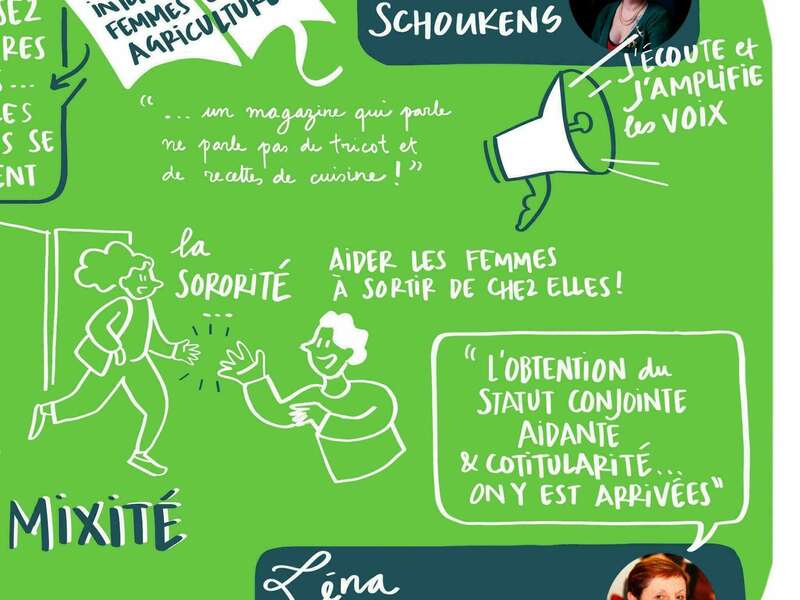 SEZ
RES
...
LES
S SE
ENT
FEMMES
AGRICULTURE
SCHOUKENS
J'ÉCOUTE et
J'AMPLIFIE
les VOIX
"... un magazine qui parle
ne parle pas de tricot et
de recettes de cuisine !"
la
SORORITÉ
...
AIDER LES FEMMES
À SORTIR DE CHEZ ELLES !
"L'OBTENTION du
STATUT CONJOINTE
AIDANTE
& COTITULARITÉ...
ON Y EST ARRIVÉES"
MIXITÉ
Léna